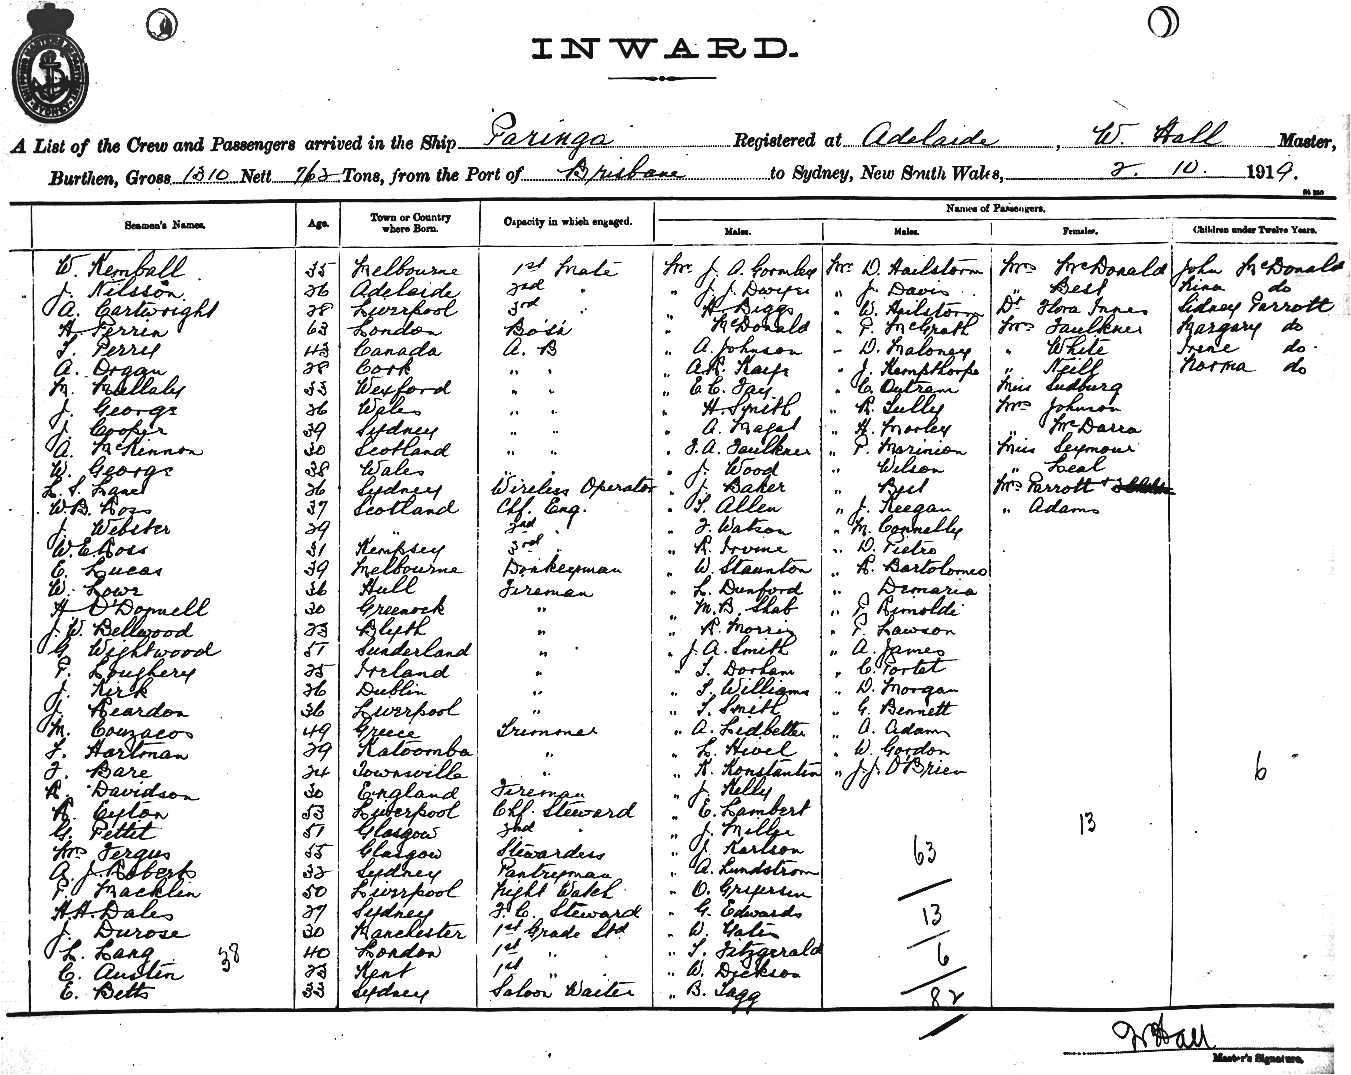 INWARD.
A List of the Crew and Passengers arrived in the Ship Paringa Registered at Adelaide, W. Hall Master,
Burthen, Gross 1310 Nett 762 Tons, from the Port of Brisbane to Sydney, New South Wales, 2. 10. 1919.
Names of Passengers.
Seamen's Names. Age. Town or Country where Born. Capacity in which engaged. Males. Males. Females. Children under Twelve Years.
W. Kemball 55 Melbourne 1st Mate Mr. J. A. Gormley Mr. D. Hailstorm Mrs McDonald John McDonald
J. Nilsson 26 Adelaide 2nd " " J. J. Dwyer " J. Davis " Best do
A. Cartwright 28 Liverpool 3rd " " H. Biggs " W. Hailstorm Dr. Flora Innes Sidney Parrott
H. Perrin 63 London Bo'sn " McDonald " P. McGrath Mrs Faulkner Margary do
T. Perry 43 Canada A. B " A. Johnson " D. Maloney " White Irene do
A. Organ 28 Cork " " " A. R. " J. Kempthorpe " Neill Norma do
M. Mullaly 53 Wexford " " " E. C. Fay " C. Outram Miss Ludburg
J. George 26 Wales " " " H. Smith " R. Tully Mrs Johnson
J. Cooper 39 Sydney " " " A. Magat " H. Morley " McDarra
A. McKinnon 30 Scotland " " " F. A. Faulkner " P. Marinion Miss Seymour
W. George 38 Wales " " " J. Wood " Wilson " Leal
L. S. Lane 26 Sydney Wireless Operator " J. Baker " Best Mrs Parrott
W. B. Ross 37 Scotland Chf. Eng. " T. Allen " J. Keegan " Adams
J. Webster 29 " 2nd " " F. Watson " M. Connelly
W. E. Ross 31 Kempsey 3rd " " R. Irvine " D. Pietro
E. Lucas 39 Melbourne Donkeyman " W. Staunton " R. Bartolomeo
W. Lowe 36 Hull Fireman " L. Dunford " Demaria
H. O'Donnell 30 Greenock " " M. B. Shab " P. Rimoldi
J. W. Bellwood 23 Blyth " " R. Morris " P. Lawson
G. Wightwood 51 Sunderland " " J. A. Smith " A. James
P. Loughery 25 Ireland " " T. Dorham " C. Portet
J. Kirk 26 Dublin " " T. Williams " D. Morgan
J. Reardon 36 Liverpool " " T. Smith " G. Bennett
M. Couzacos 49 Greece Trimmer " A. Lidbetter " A. Adams
F. Hartman 29 Katoomba " " L. Hivel " W. Gordon
F. Bare 24 Townsville " " K. Konstantin " J. J. O'Brien 6
R. Davidson 30 England Fireman " J. Kelly
R. Eyton 53 Liverpool Chf. Steward " E. Lambert 13
G. Pettit 51 Glasgow 2nd " " J. Miller
Mrs Fergus 55 Glasgow Stewardess " J. Karlson 63
A. J. Roberts 32 Sydney Pantryman " A. Lundstrom
P. Macklin 50 Liverpool Night Watch " O.
H. H. Dales 27 Sydney F. C. Steward " G. Edwards 13
J. Durose 30 Manchester 1st Grade Std " W. Yates
L. Lang 38 40 London 1st " " T. Fitzgerald 6
C. Austin 23 Kent 1st " " W. Dickson
E. Betts 33 Sydney Saloon Waiter " B. Tagg 82
W Hall
Master's Signature.